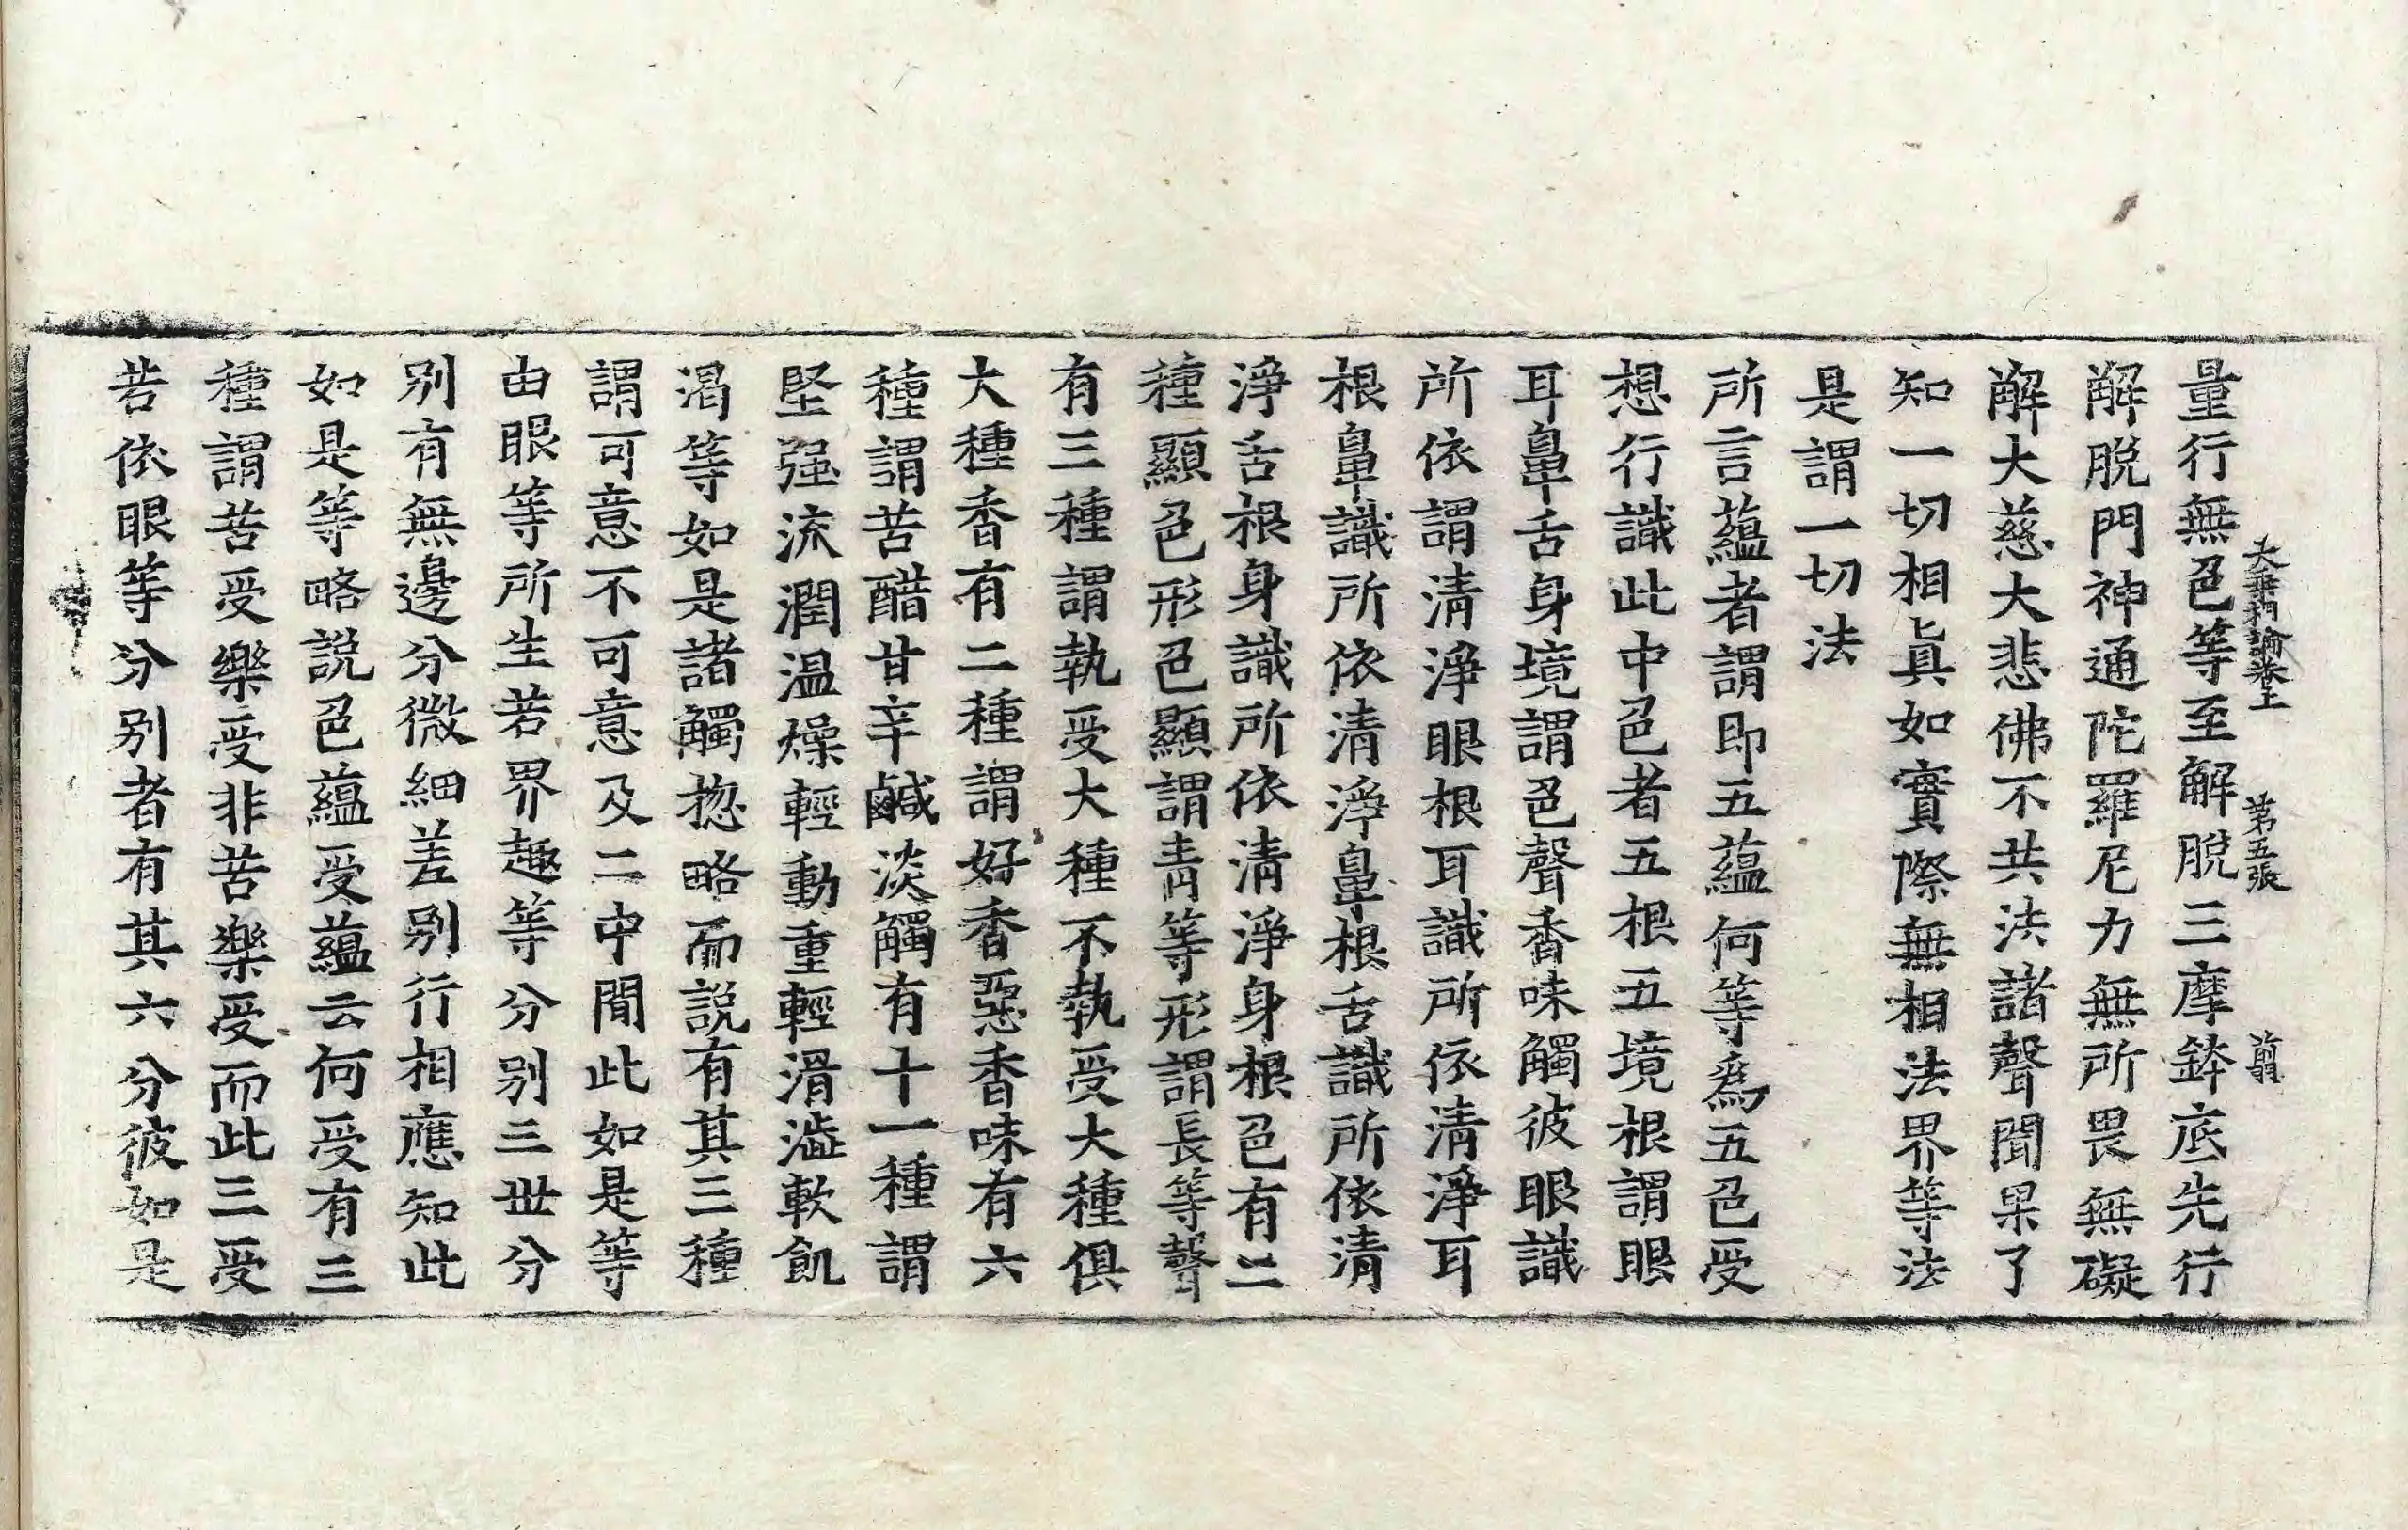 大乘掌論卷上　第五張　剪
量行無色等至解脫三摩鉢底先行
解脫門神通陀羅尼力無所畏無礙
解大慈大悲佛不共法諸聲聞果了
知一切相眞如實際無相法界等法
是謂一切法
所言蘊者謂即五蘊何等爲五色受
想行識此中色者五根五境根謂眼
耳鼻舌身境謂色聲香味觸彼眼識
所依謂清淨眼根耳識所依清淨耳
根鼻識所依清淨鼻根舌識所依清
淨舌根身識所依清淨身根色有二
種顯色形色顯謂青等形謂長等聲
有三種謂執受大種不執受大種俱
大種香有二種謂好香惡香味有六
種謂苦醋甘辛鹹淡觸有十一種謂
堅强流潤温燥輕動重輕滑澁軟飢
渴等如是諸觸揔略而說有其三種
謂可意不可意及二中間此如是等
由眼等所生若界趣等分别三世分
别有無邊分微細差别行相應知此
如是等略說色蘊受蘊云何受有三
種謂苦受樂受非苦樂受而此三受
若依眼等分别者有其六分彼如是